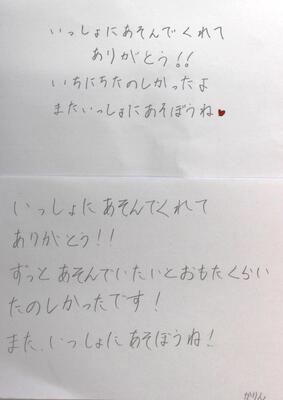 いっしょにあそんでくれて
ありがとう!!
いちにちたのしかったよ
またいっしょにあそぼうね♥
いっしょに あそんでくれて
ありがとう!!
ずっと あそんでいたいとおもたくらい
たのしかったです!
また、いっしょにあそぼうね!
かりん